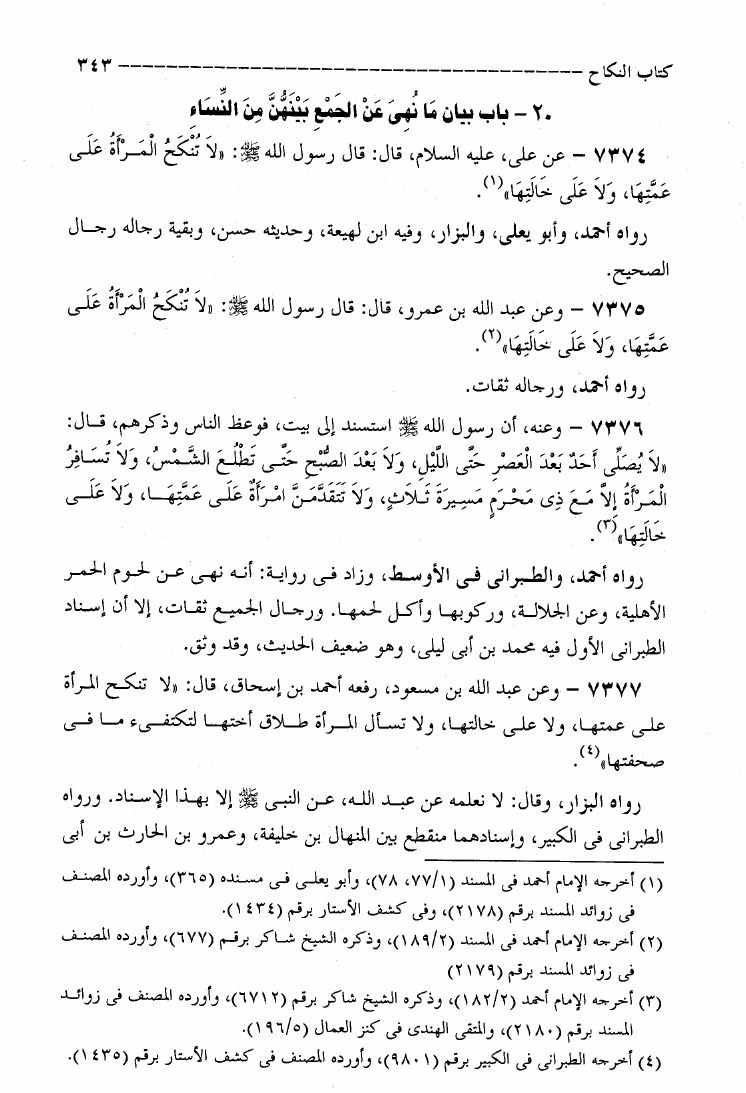 كتاب النكاح ------------------------------------------ ٣٤٣
٢٠ - باب بيان مَا نُهِىَ عَنْ الجَمْعِ بَيْنَهُنَّ مِنَ النِّسَاءِ
٧٣٧٤ - عن على، عليه السلام، قال: قال رسول الله ﷺ: «لاَ تُنْكَحُ الْمَرْأَةُ عَلَى
عَمَّتِهَا، وَلاَ عَلَى خَالَتِهَا»(١).
رواه أحمد، وأبو يعلى، والبزار، وفيه ابن لهيعة، وحديثه حسن، وبقية رجاله رجال
الصحيح.
٧٣٧٥ - وعن عبد الله بن عمرو، قال: قال رسول الله ﷺ: «لاَ تُنْكَحُ الْمَرْأَةُ عَلَى
عَمَّتِهَا، وَلاَ عَلَى خَالَتِهَا»(٢).
رواه أحمد، ورجاله ثقات.
٧٣٧٦ - وعنه، أن رسول الله ﷺ استسند إلى بيت، فوعظ الناس وذكرهم، قال:
«لاَ يُصَلِّى أَحَدٌ بَعْدَ الْعَصْرِ حَتَّى اللَّيْلِ، وَلاَ بَعْدَ الصُّبْحِ حَتَّى تَطْلُعَ الشَّمْسُ، وَلاَ تُسَافِرُ
الْمَرْأَةُ إِلاَّ مَعَ ذِى مَحْرَمٍ مَسِيرَةَ ثَلاَثٍ، وَلاَ تَتَقَدَّمَنَّ امْرَأَةٌ عَلَى عَمَّتِهَا، وَلاَ عَلَى
خَالَتِهَا»(٣).
رواه أحمد، والطبرانى فى الأوسط، وزاد فى رواية: أنه نهى عن لحوم الحمر
الأهلية، وعن الجلالة، وركوبها وأكل لحمها. ورجال الجميع ثقات، إلا أن إسناد
الطبرانى الأول فيه محمد بن أبى ليلى، وهو ضعيف الحديث، وقد وثق.
٧٣٧٧ - وعن عبد الله بن مسعود، رفعه أحمد بن إسحاق، قال: «لا تنكح المرأة
على عمتها، ولا على خالتها، ولا تسأل المرأة طلاق أختها لتكتفىء ما فى
صحفتها»(٤).
رواه البزار، وقال: لا نعلمه عن عبد الله، عن النبى ﷺ إلا بهذا الإسناد. ورواه
الطبرانى فى الكبير، وإسنادهما منقطع بين المنهال بن خليفة، وعمرو بن الحارث بن أبى
(١) أخرجه الإمام أحمد فى المسند (٧٧/١، ٧٨)، وأبو يعلى فى مسنده (٣٦٥)، وأورده المصنف
فى زوائد المسند برقم (٢١٧٨)، وفى كشف الأستار برقم (١٤٣٤).
(٢) أخرجه الإمام أحمد فى المسند (١٨٩/٢)، وذكره الشيخ شاكر برقم (٦٧٧)، وأورده المصنف
فى زوائد المسند برقم (٢١٧٩)
(٣) أخرجه الإمام أحمد (١٨٢/٢)، وذكره الشيخ شاكر برقم (٦٧١٢)، وأورده المصنف فى زوائد
المسند برقم (٢١٨٠)، والمتقى الهندى فى كنز العمال (١٩٦/٥).
(٤) أخرجه الطبرانى فى الكبير برقم (٩٨٠١)، وأورده المصنف فى كشف الأستار برقم (١٤٣٥).